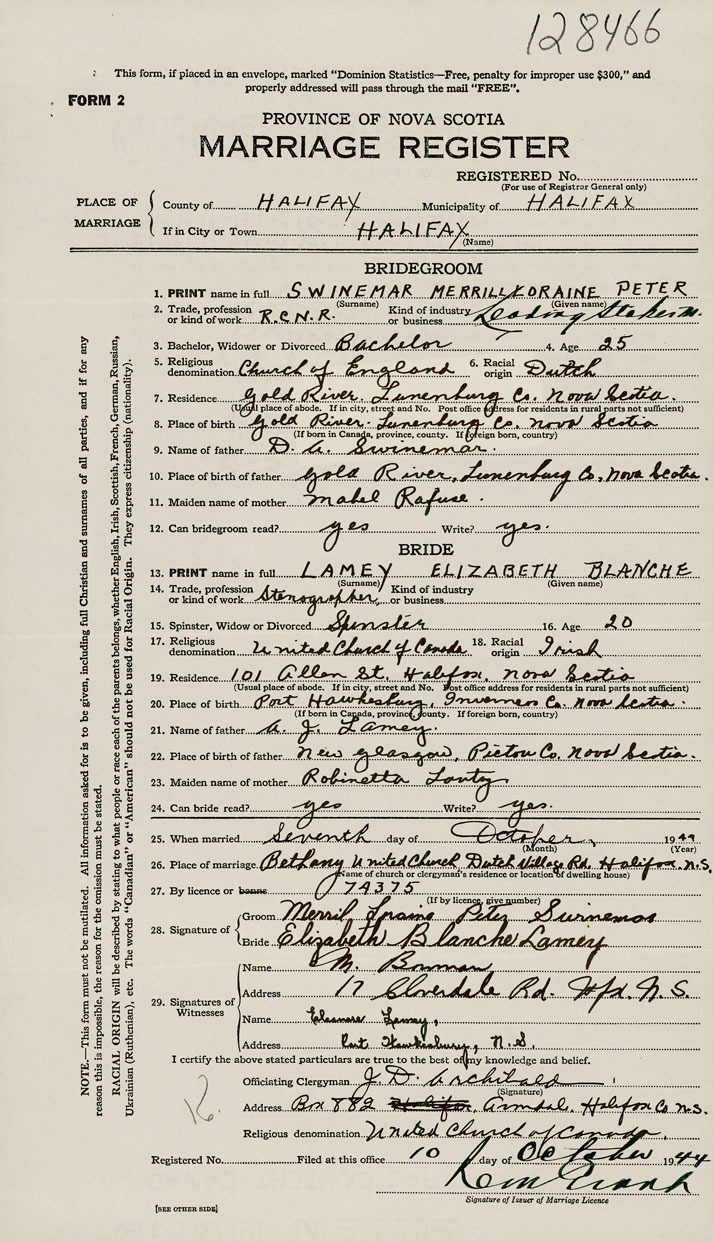 128466
This form, if placed in an envelope, marked "Dominion Statistics—Free, penalty for improper use $300," and
properly addressed will pass through the mail "FREE".
FORM 2
PROVINCE OF NOVA SCOTIA
MARRIAGE REGISTER
REGISTERED No.
(For use of Registrar General only)
PLACE OF MARRIAGE
County of HALIFAX Municipality of HALIFAX
If in City or Town HALIFAX
(Name)
BRIDEGROOM
1. PRINT name in full SWINEMAR MERRILL LORAINE PETER
(Surname) (Given name)
2. Trade, profession or kind of work R.C.N.R. Kind of industry or business Leading
3. Bachelor, Widower or Divorced Bachelor 4. Age 25
5. Religious denomination Church of England 6. Racial origin Dutch
7. Residence Gold River, Lunenburg Co. Nova Scotia.
(Usual place of abode. If in city, street and No. Post office address for residents in rural parts not sufficient)
8. Place of birth Gold River. Lunenburg Co. Nova Scotia
(If born in Canada, province, county. If foreign born, country)
9. Name of father D. A. Swinemar.
10. Place of birth of father Gold River, Lunenburg Co, Nova Scotia.
11. Maiden name of mother Mabel Rafuse.
12. Can bridegroom read? yes Write? yes.
BRIDE
13. PRINT name in full LAMEY ELIZABETH BLANCHE
(Surname) (Given name)
14. Trade, profession or kind of work Stenographer, Kind of industry or business
15. Spinster, Widow or Divorced Spinster 16. Age 20
17. Religious denomination United Church of Canada 18. Racial origin Irish
19. Residence 101 Allen St. Halifax, Nova Scotia
(Usual place of abode. If in city, street and No. Post office address for residents in rural parts not sufficient)
20. Place of birth Port Hawkesbury, Inverness Co. Nova Scotia.
(If born in Canada, province, county. If foreign born, country)
21. Name of father A. J. Lamey.
22. Place of birth of father New Glasgow, Pictou Co. Nova Scotia.
23. Maiden name of mother Robinetta
24. Can bride read? yes Write? yes.
25. When married Seventh day of October, 1944
(Month) (Year)
26. Place of marriage Bethany United Church Dutch Village Rd. Halifax. N.S.
(Name of church or clergyman's residence or location of dwelling house)
27. By licence or banns 74375
(If by licence, give number)
28. Signature of Groom Merril Loraine Peter Swinemar
Bride Elizabeth Blanche Lamey
29. Signatures of Witnesses
Name M. Bowman
Address 17 Cloverdale Rd. Hfx. N.S.
Name Eleanore Lamey,
Address Port Hawkesbury, N.S.
I certify the above stated particulars are true to the best of my knowledge and belief.
Officiating Clergyman J. D. Archibald
(Signature)
Address Box 882 Halifax Armdale, Halifax Co. N.S.
Religious denomination United Church of Canada.
Registered No. Filed at this office 10 day of October 1944
Signature of Issuer of Marriage Licence
[SEE OTHER SIDE]
NOTE.—This form must not be mutilated. All information asked for is to be given, including full Christian and surnames of all parties, and if for any
reason this is impossible, the reason for the omission must be stated.
RACIAL ORIGIN will be described by stating to what people or race each of the parents belongs, whether English, Irish, Scottish, French, German, Russian,
Ukrainian (Ruthenian), etc. The words "Canadian" or "American" should not be used for Racial Origin. They express citizenship (nationality).